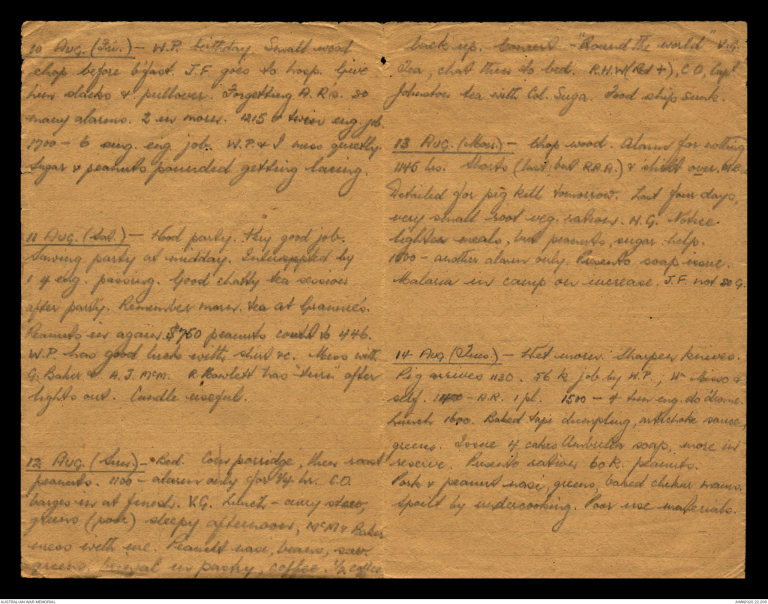 10 Aug. (Fri.) — W.P. birthday. Small wood
chop before b'fast. J.F goes to hosp. Give
him slacks & pullover. Forgetting A.R.s. so
many alarms. 2 in morn. 1215 twin eng. job
1700 - 6 sing. eng. job. W.P. & I mess quietly.
Sugar & peanuts pounded getting lacing.
11 Aug. (Sat.) — Wood party. Hvy good job.
Sawing party at midday. Interrupted by
1 4 eng. passing. Good chatty tea session
after party. Remember morn. tea at Grannie's.
Peanuts in again. $750 peanuts
W.P. has good luck with shirt &c. Mess with
G. Baker & A.J. McM. R. Rowlett has "turn" after
lights out. Candle useful.
12 Aug. (Sun.) — Bed. Corn porridge, then roast
peanuts. 1100 - alarm only for ¾ hr. C.O.
barges in at finish. K.G. Lunch - curry stew,
greens (poor) sleepy afternoon, McM & Baker
mess with me. Peanut nasi, beans, saw.
greens, in pastry, coffee. ½ coffee
back up. Concert - "Round the world" V.G.
Tea, chat then to bed. R.H.W (Red +), C.O, Capt
Johnston tea with Col. Suga. Food ship sunk.
13 Aug. (Mon.) — Chop wood. Alarm for nothing
1145 hrs. Shorts (but R.A.A.) & shirt over,
Detailed for pig kill tomorrow. Last four days,
very small root veg. ration. N.G. Notice
lighter meals, but peanuts, sugar help.
1600 - another alarm only. Presento soap issue.
Malaria in camp on increase. J.F. not so G.
14 Aug (Tues.) — Wet morn. Sharpen knives.
Pig arrives 1130. 56 k job by W.P., &
self. 1400 - A.R. 1 pl. 1500 - 4 twin eng. do
Lunch 1600. Baked tapi dumpling, artichoke sauce,
greens. Issue 4 cakes Umbrella soap, more in
reserve. Presento ration 60 k. peanuts.
Pork & peanut nasi, greens, baked
spoilt by undercooking. Poor use materials.
AUSTRALIAN WAR MEMORIAL